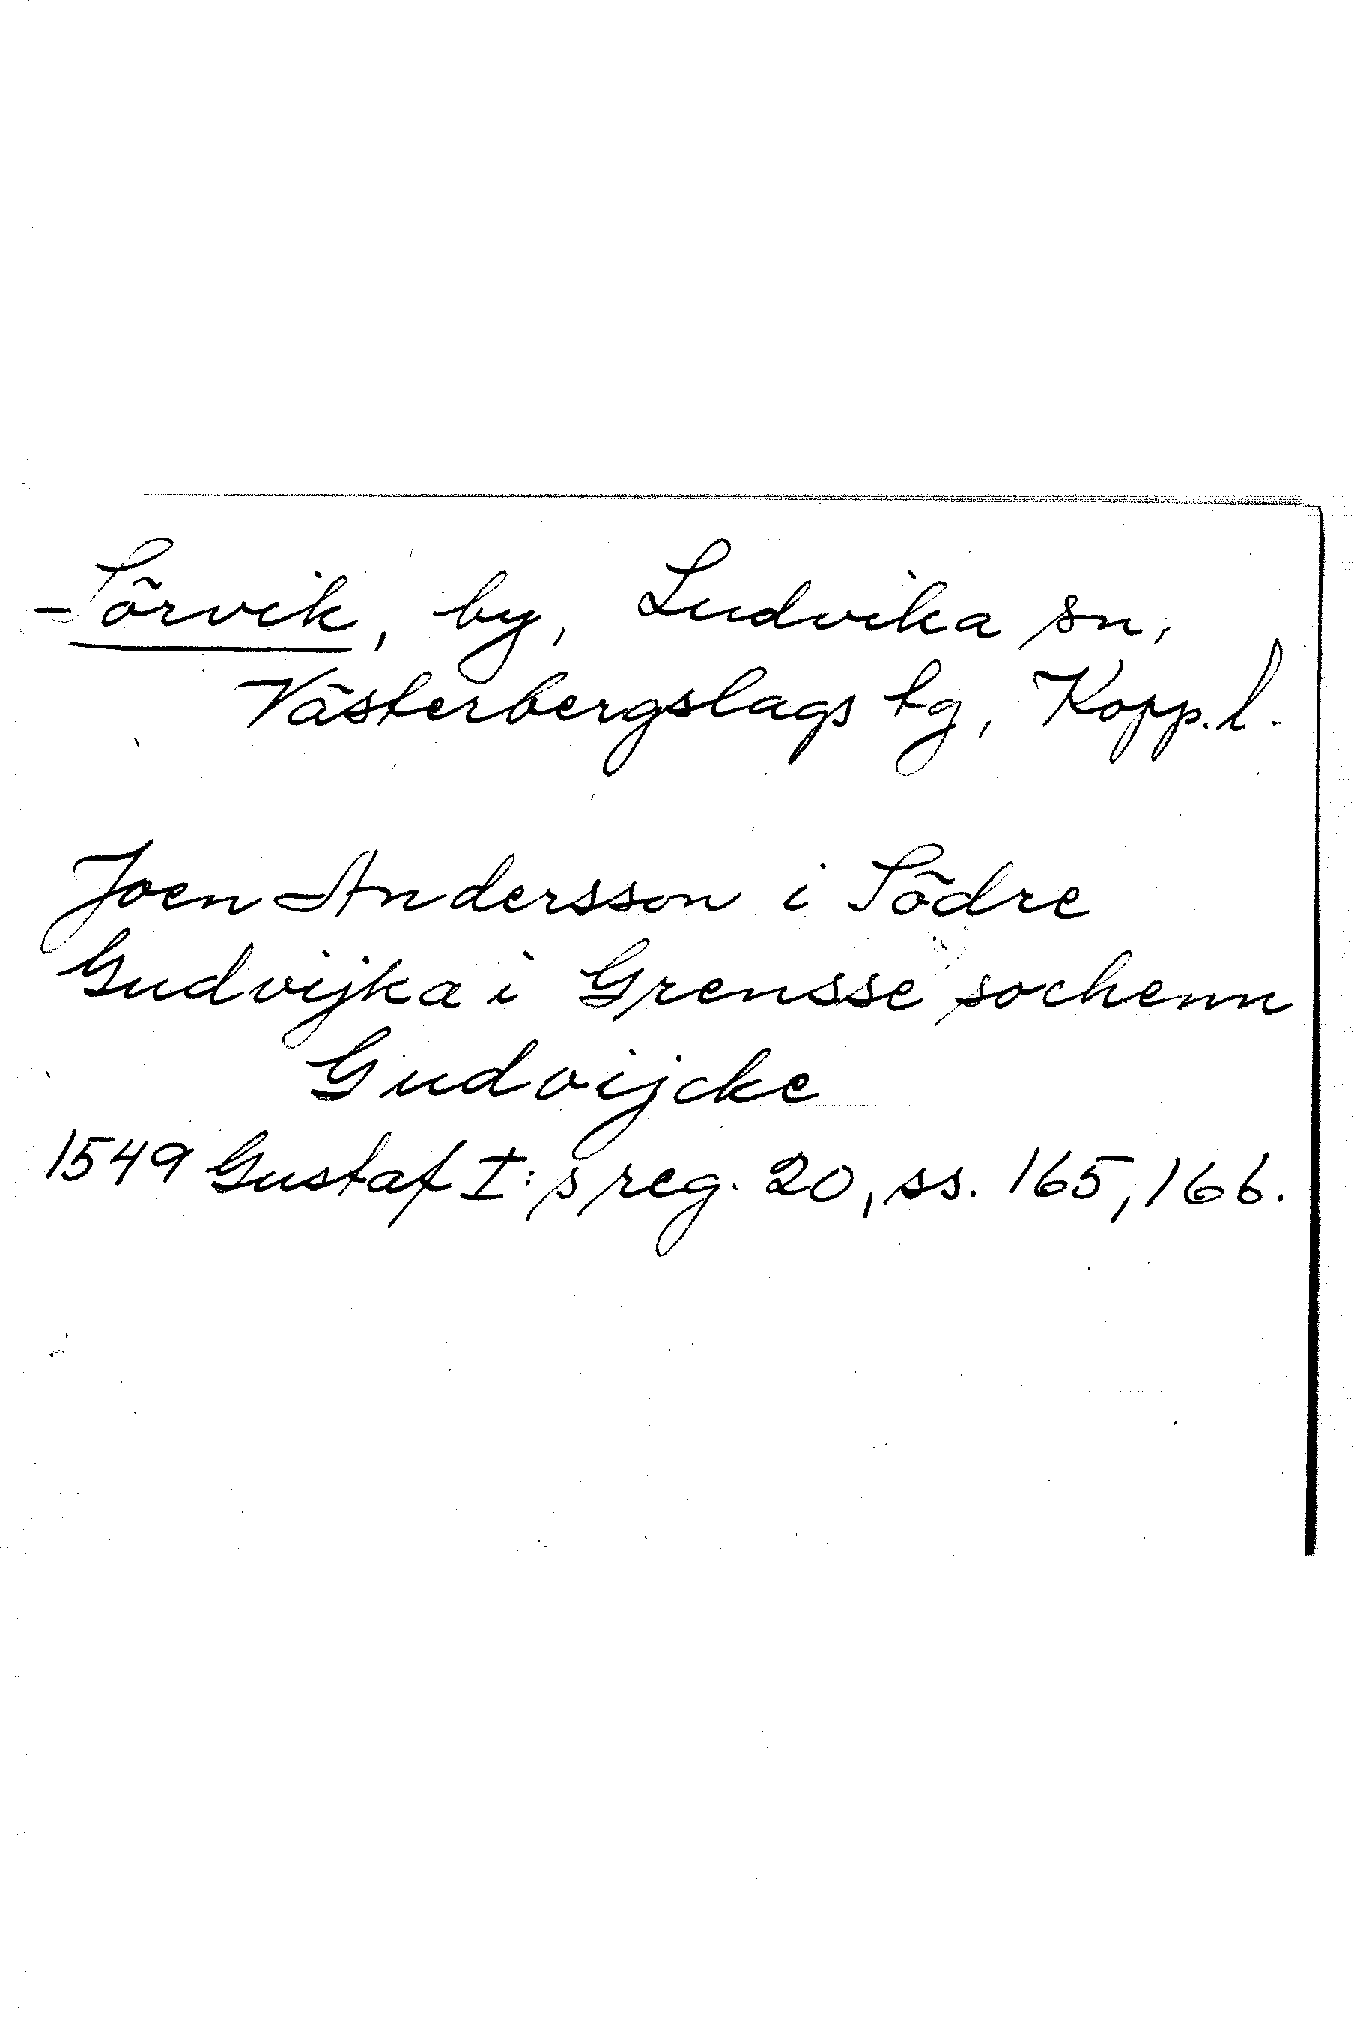 Sörvik, by, Ludvika sn,
Västerbergslags tg, Kopp. l.
Joen Andersson i Södre
Gudvijka i Grensse sochenn
Gudvijcke
1549 Gustaf I:s reg. 20, ss. 165, 166.